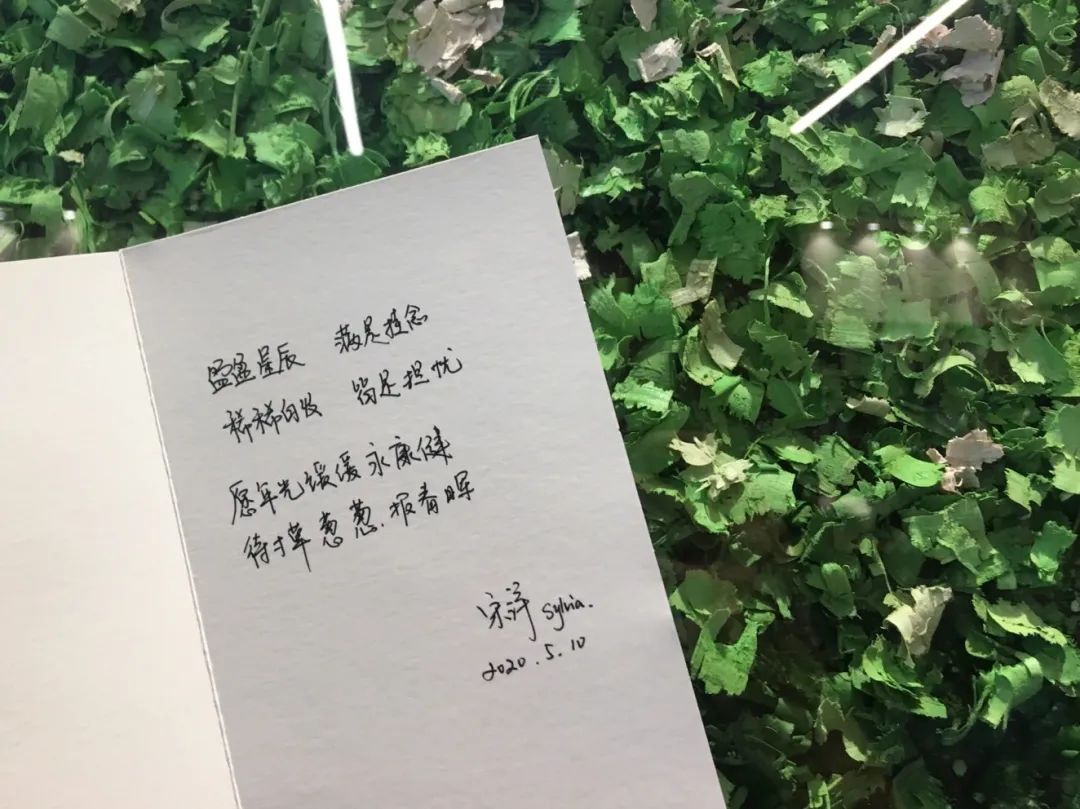 盈盈星辰 满是挂念
稀稀白发 皆是担忧
愿年光缓缓永康健
待寸草葱葱.报春晖
宋洋 Sylvia.
2020.5.10